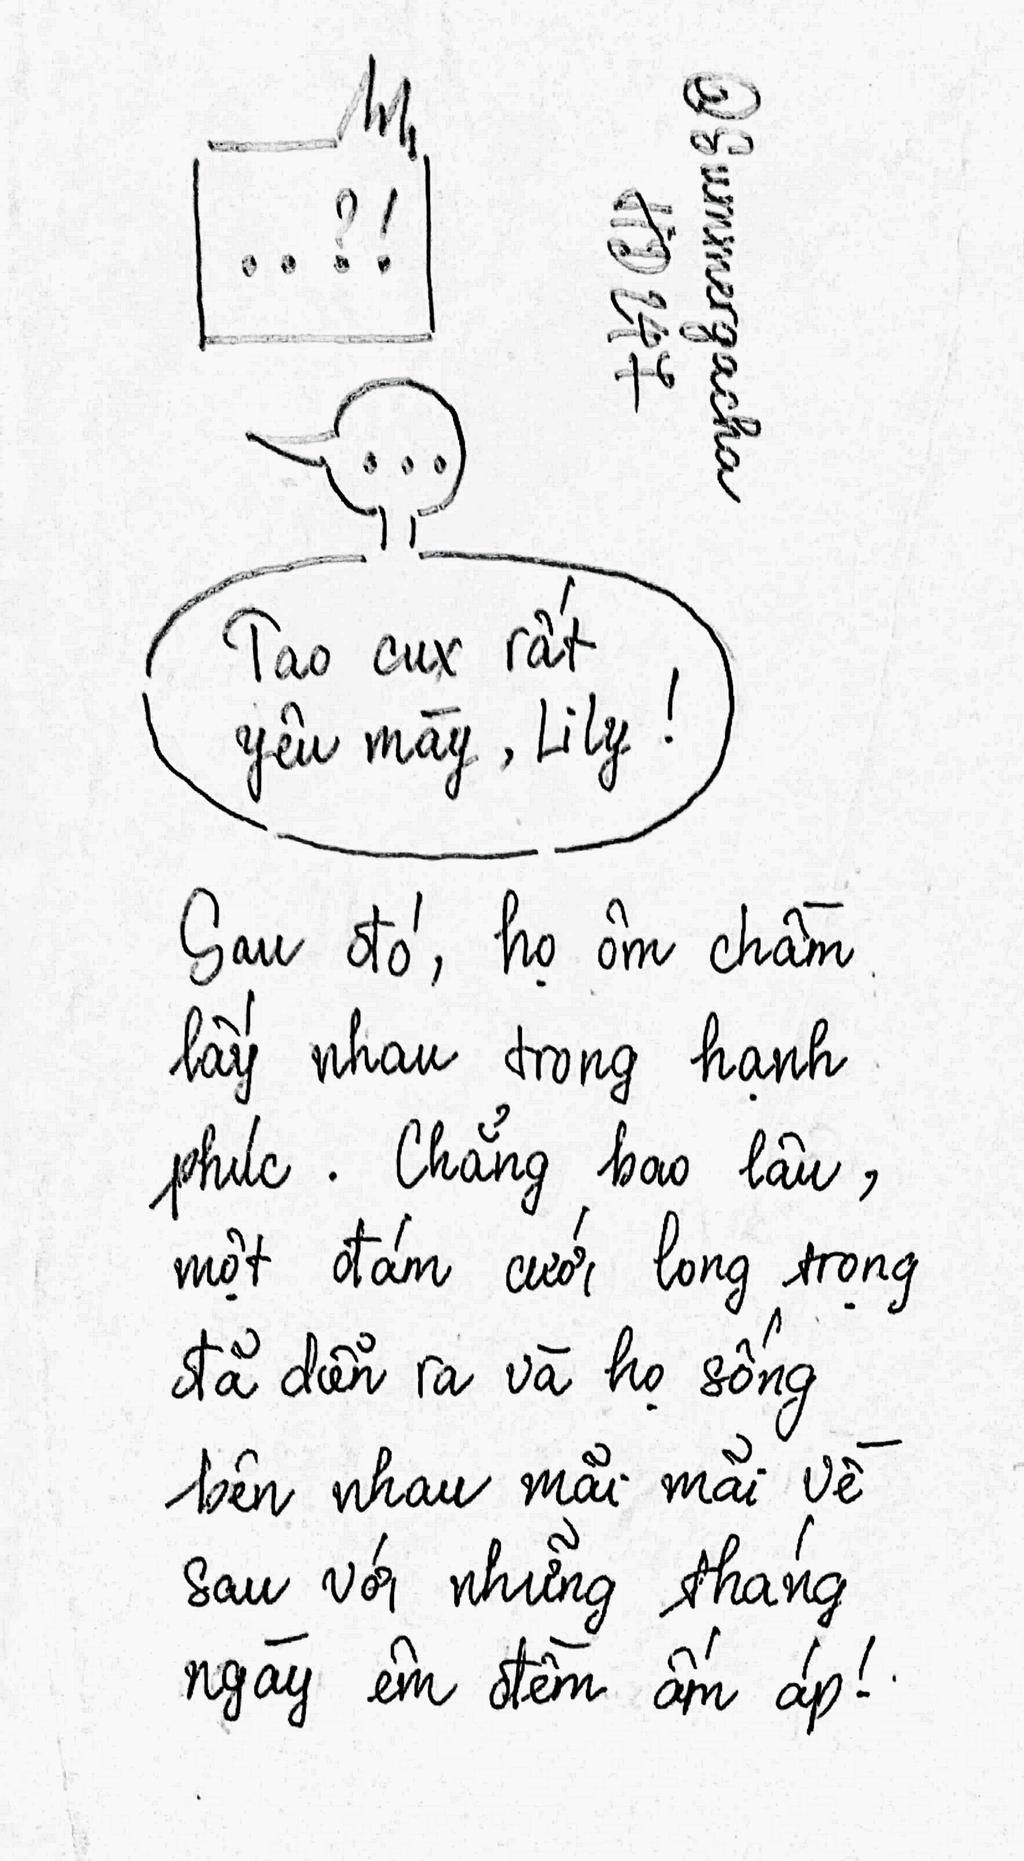 ..?!
@Summergacha
...
Tao cux rất
yêu mày, Lily!
Sau đó, họ ôm chầm
lấy nhau trong hạnh
phúc. Chẳng bao lâu,
một đám cưới long trọng
đã diễn ra và họ sống
bên nhau mãi mãi về
sau với những tháng
ngày êm đềm ấm áp!